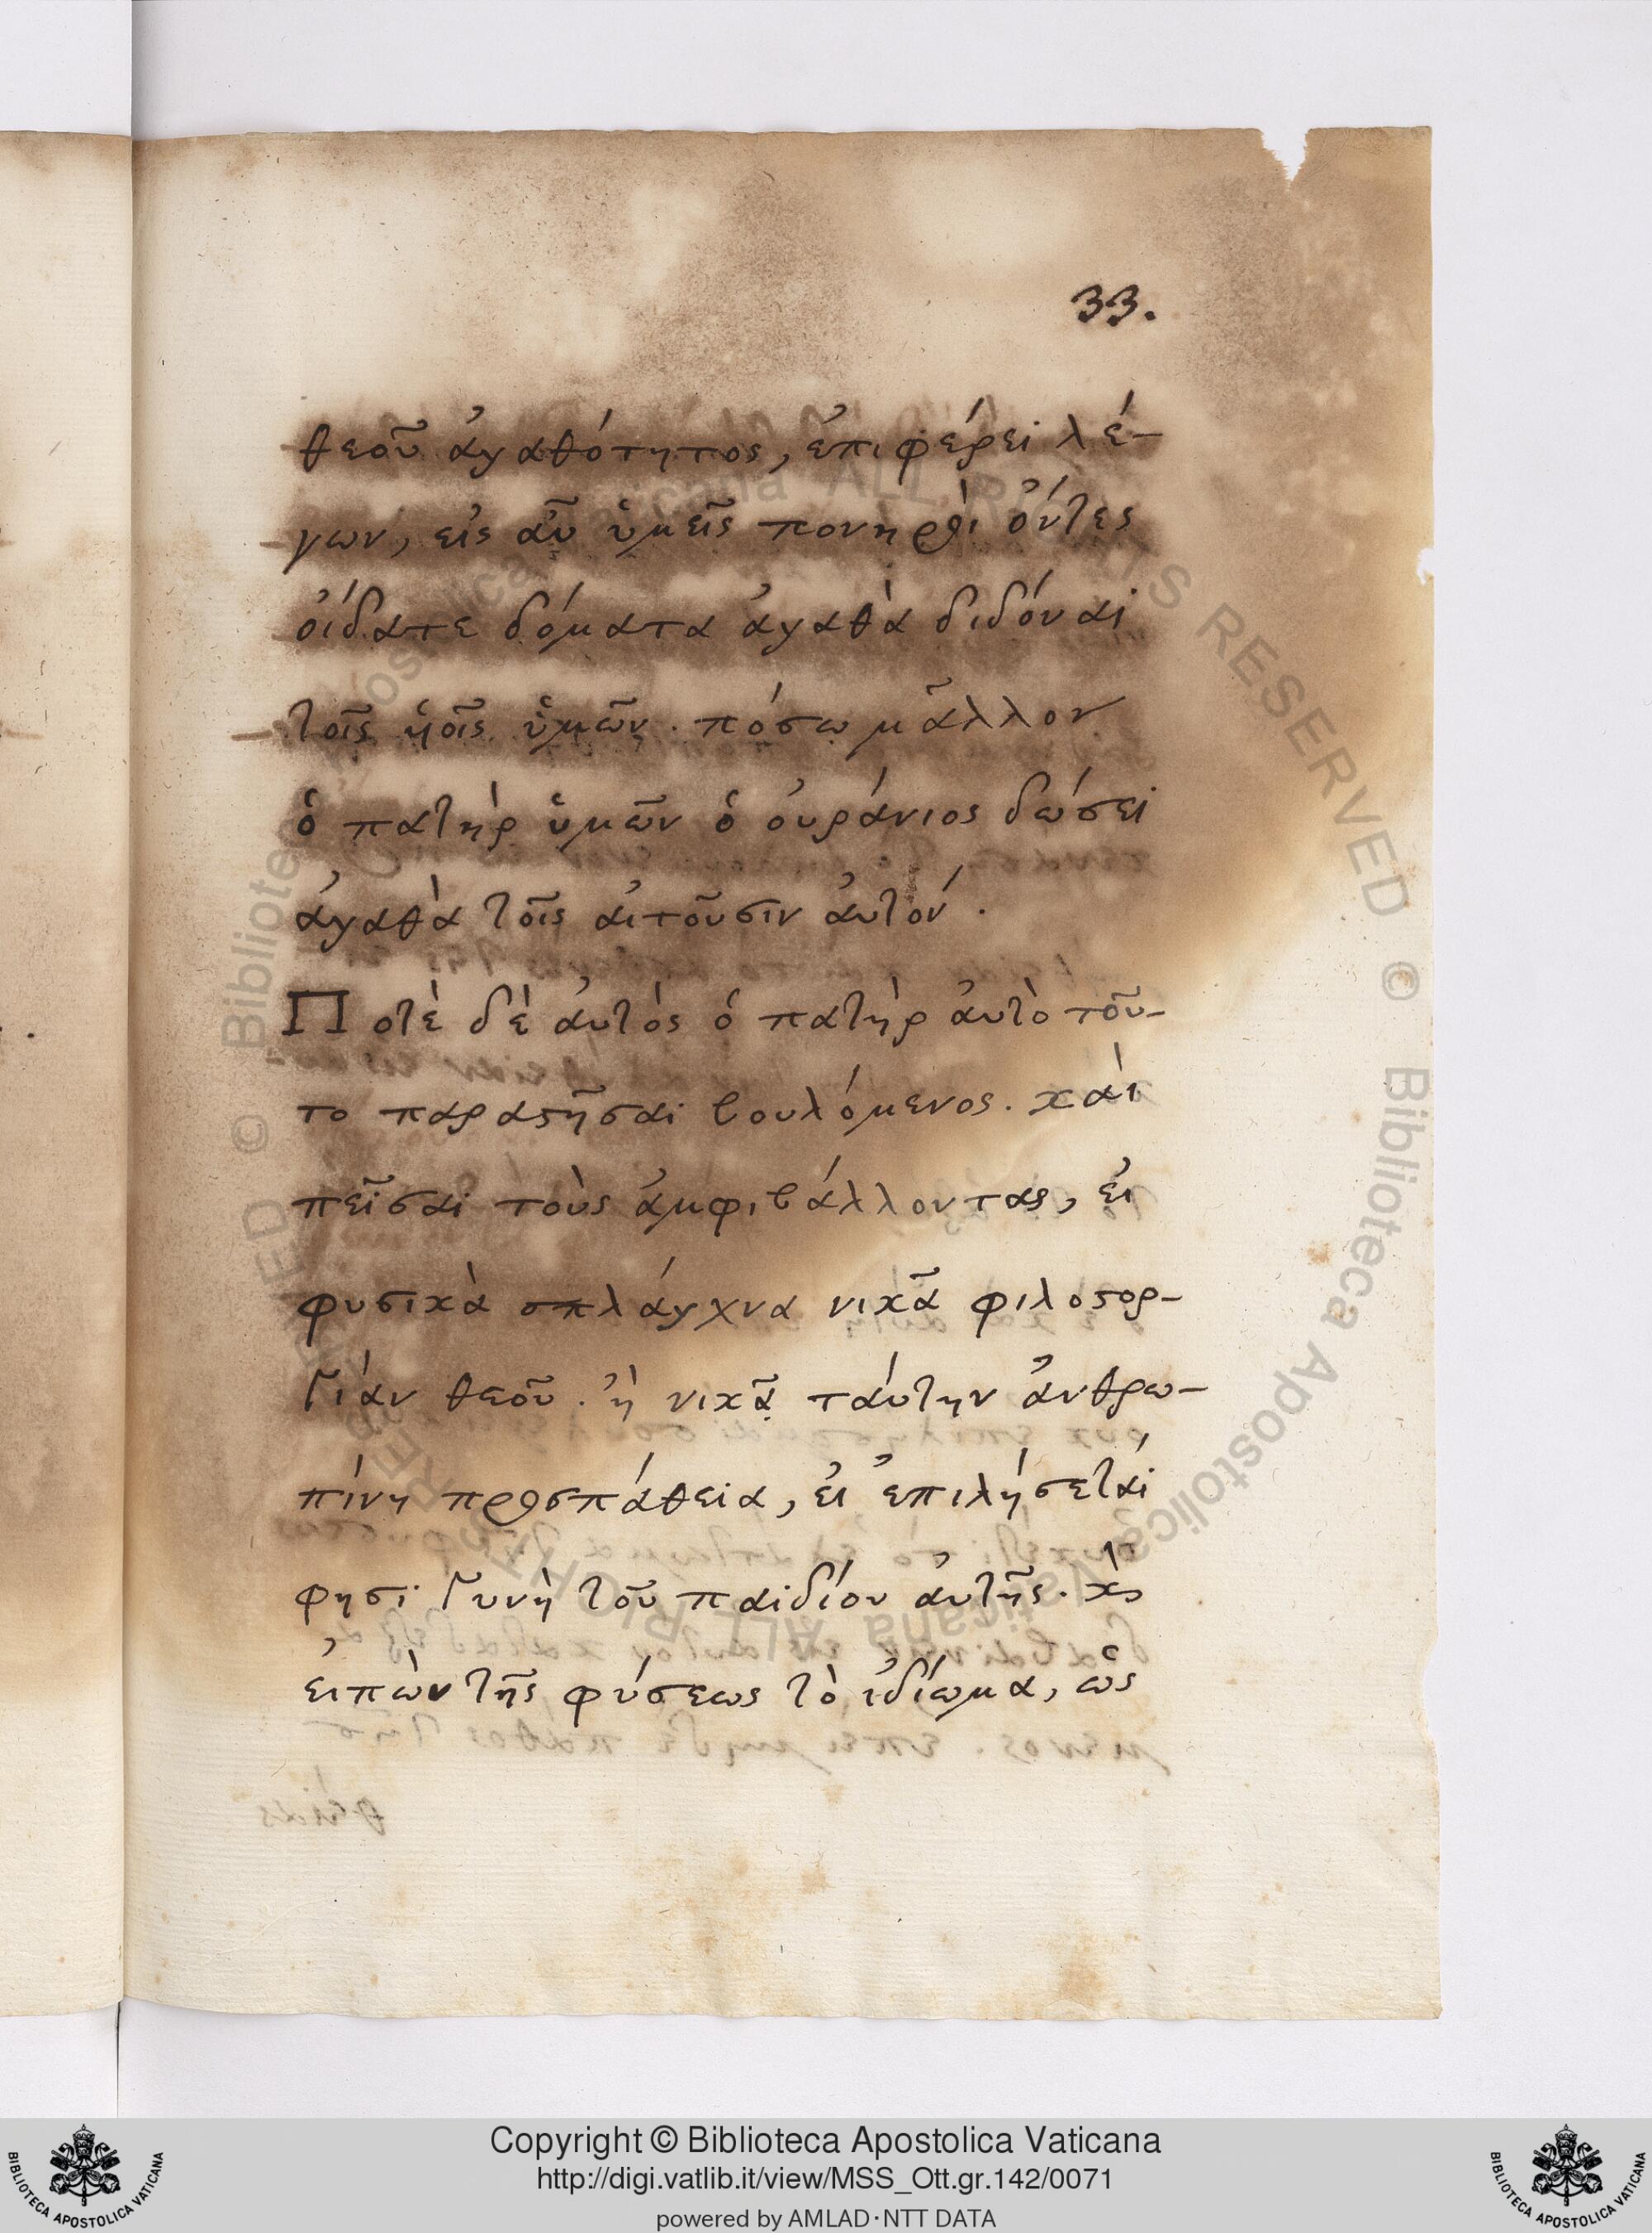 33.
θεοῦ ἀγαθότητος, ἐπιφέρει λέ-
γων, εἰς ἂν ὑμεῖς πονηροὶ ὄντες
οἴδατε δόματα ἀγαθὰ διδόναι
τοῖς ὑοῖς ὑμῶν. πόσω μᾶλλον
ὁ πατὴρ ὑμῶν ὁ οὐράνιος δώσει
ἀγαθὰ τοῖς αἰτοῦσιν αὐτόν.
Ποτὲ δὲ αὐτὸς ὁ πατὴρ αὐτὸ τοῦ-
το παραστῆσαι βουλόμενος. καὶ
πεῖσαι τοὺς ἀμφιβάλλοντας, εἰ
φυσικὰ σπλάγχνα νικᾶ φιλοστορ-
γίαν θεοῦ. ἢ νικᾶ ταύτην ἀνθρω-
πίνη προσπάθεια, εἰ ἐπιλήσεται
φησι γυνὴ τοῦ παιδίου αὐτῆς. κὶ
εἰπὼν τῆς φύσεως τὸ ἰδίωμα, ὡς
BIBLIOTECA APOSTOLICA VATICANA
Copyright © Biblioteca Apostolica Vaticana
http://digi.vatlib.it/view/MSS_Ott.gr.142/0071
powered by AMLAD·NTT DATA
BIBLIOTECA APOSTOLICA VATICANA